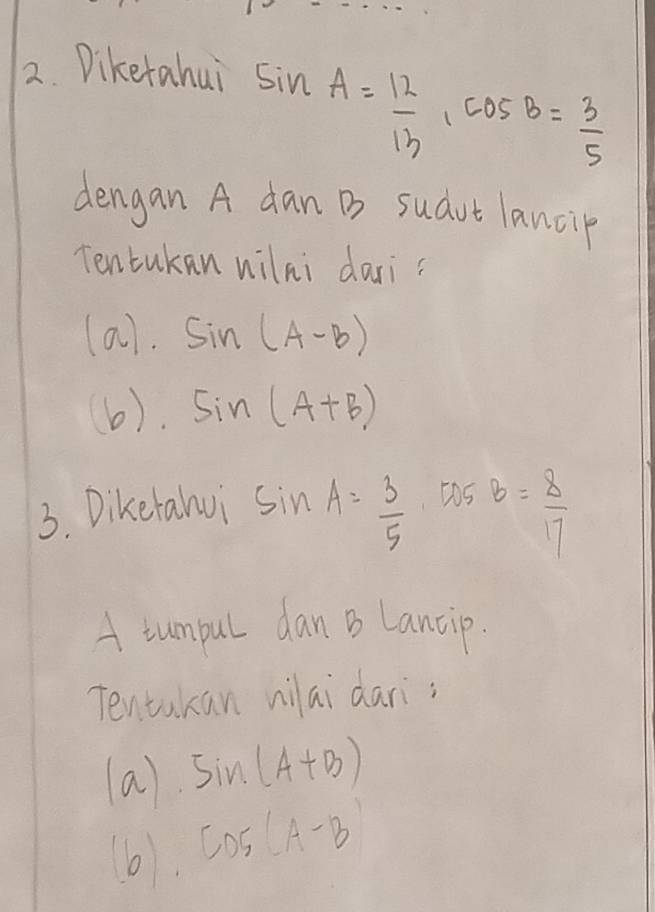 2. Diketahui Sin A = 12/13, cos B = 3/5
dengan A dan B sudut lancip
Tentukan nilai dari :
(a). Sin (A-B)
(b). Sin (A+B)
3. Diketahui Sin A = 3/5, cos B = 8/17
A tumpul dan B Lancip.
Tentukan nilai dari :
(a). Sin (A+B)
(b). Cos (A-B)